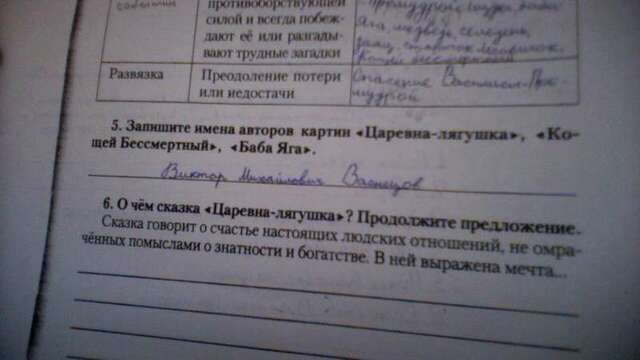 противоборствующей
силой и всегда побеж-
дают её или разгады-
вают трудные загадки
Яга, медведь, селезень,
Развязка
Преодоление потери
или недостачи
Спасение Василисы-Пре-
мудрой
5. Запишите имена авторов картин «Царевна-лягушка», «Ко-
щей Бессмертный», «Баба Яга».
Виктор Михайлович Васнецов
6. О чём сказка «Царевна-лягушка»? Продолжите предложение.
Сказка говорит о счастье настоящих людских отношений, не омра-
чённых помыслами о знатности и богатстве. В ней выражена мечта...